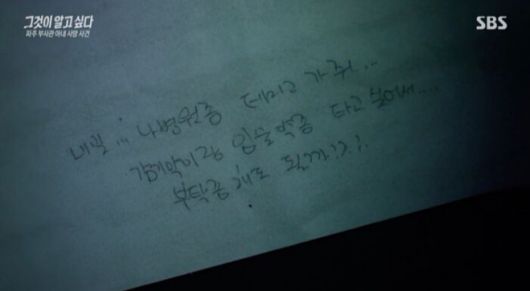 그것이 알고 싶다
파주 부사관 아내 사망 사건
SBS
내일... 나 병원좀 데리고 가줘...
감기약이랑 입술약좀 타고 싶어서....
부탁좀 해도 될까?.?.!.